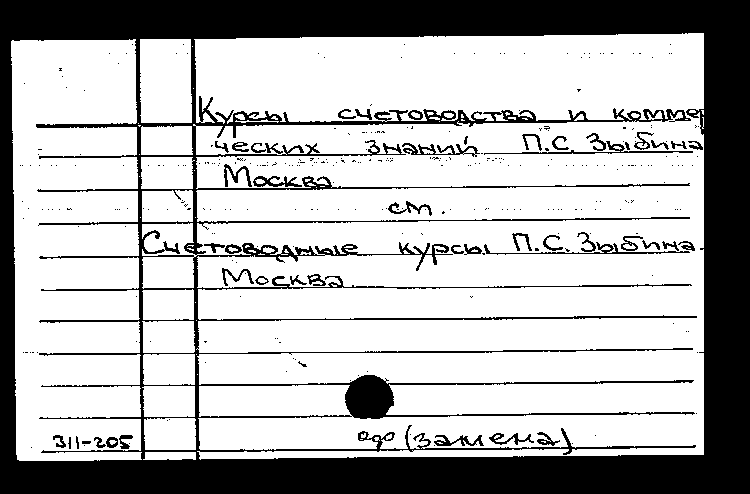 Курсы счетоводства и коммер
ческих знаний П.С. Зыбина
Москва
см.
Счетоводные курсы П.С. Зыбина.
Москва
311-205 (замена)